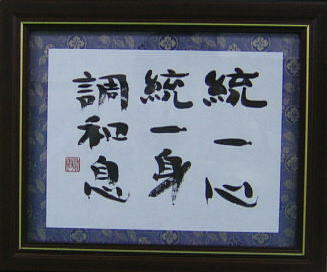 統一心
統一身
調和息